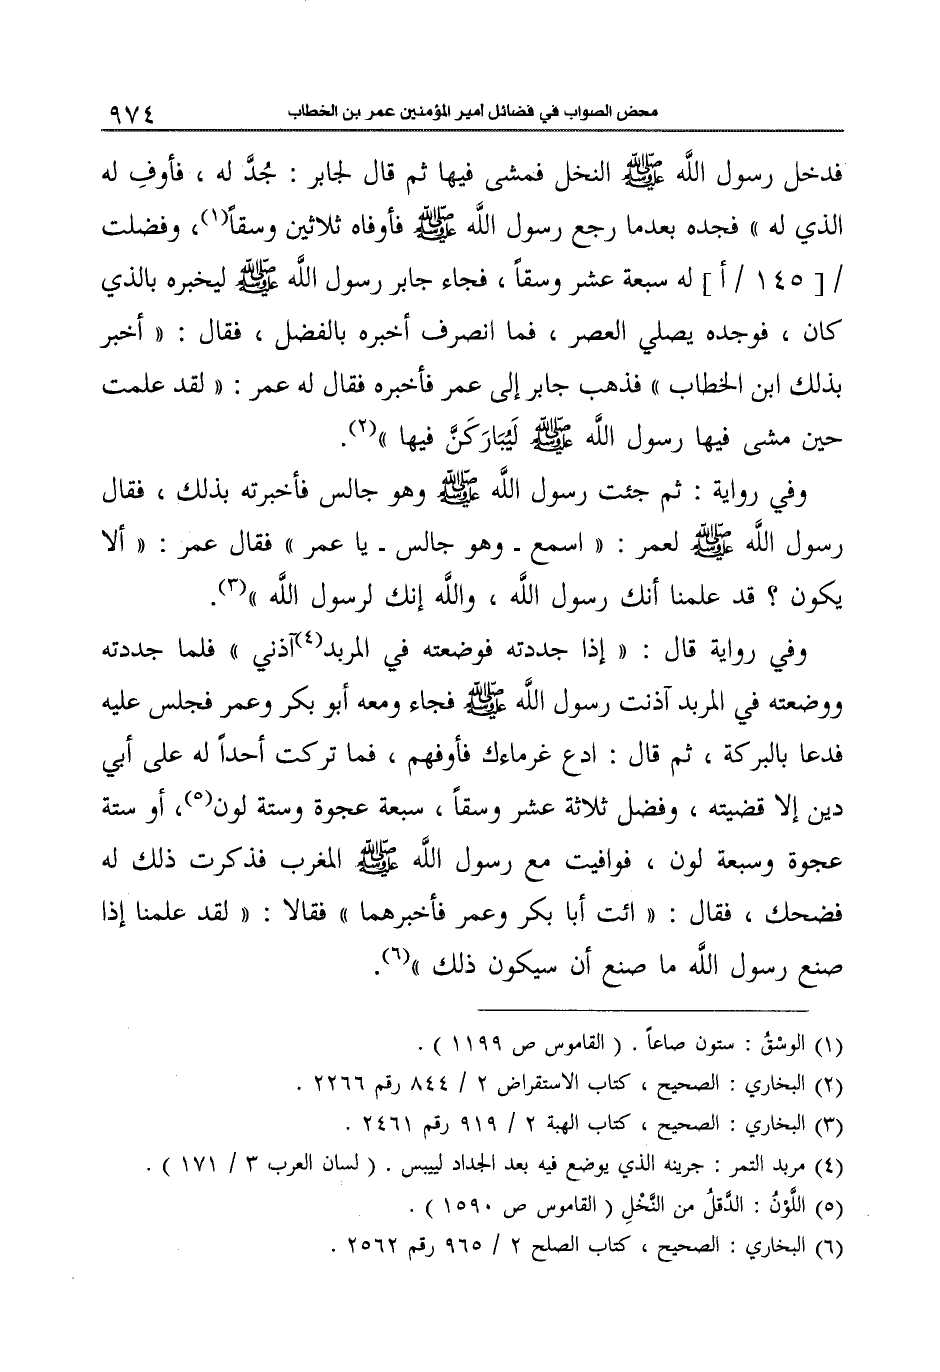 محض الصواب في فضائل أمير المؤمنين عمر بن الخطاب ٩٧٤
فدخل رسول اللَّه ﷺ النخل فمشى فيها ثم قال لجابر : جُدَّ له ، فأوفِ له
الذي له » فجده بعدما رجع رسول اللَّه ﷺ فأوفاه ثلاثين وسقاً(١)، وفضلت
/ [ ١٤٥ / أ ] له سبعة عشر وسقاً ، فجاء جابر رسول اللَّه ﷺ ليخبره بالذي
كان ، فوجده يصلي العصر ، فما انصرف أخبره بالفضل ، فقال : « أخبر
بذلك ابن الخطاب » فذهب جابر إلى عمر فأخبره فقال له عمر : « لقد علمت
حين مشى فيها رسول اللَّه ﷺ لَيُبَارَكَنَّ فيها »(٢).
وفي رواية : ثم جئت رسول اللَّه ﷺ وهو جالس فأخبرته بذلك ، فقال
رسول اللَّه ﷺ لعمر : « اسمع ـ وهو جالس ـ يا عمر » فقال عمر : « ألا
يكون ؟ قد علمنا أنك رسول اللَّه ، واللَّه إنك لرسول اللَّه »(٣).
وفي رواية قال : « إذا جددته فوضعته في المربد(٤)آذني » فلما جددته
ووضعته في المربد آذنت رسول اللَّه ﷺ فجاء ومعه أبو بكر وعمر فجلس عليه
فدعا بالبركة ، ثم قال : ادع غرماءك فأوفهم ، فما تركت أحداً له على أبي
دين إلا قضيته ، وفضل ثلاثة عشر وسقاً ، سبعة عجوة وستة لون(٥)، أو ستة
عجوة وسبعة لون ، فوافيت مع رسول اللَّه ﷺ المغرب فذكرت ذلك له
فضحك ، فقال : « ائت أبا بكر وعمر فأخبرهما » فقالا : « لقد علمنا إذا
صنع رسول اللَّه ما صنع أن سيكون ذلك »(٦).
(١) الوسْقُ : ستون صاعاً . ( القاموس ص ١١٩٩ ) .
(٢) البخاري : الصحيح ، كتاب الاستقراض ٢ / ٨٤٤ رقم ٢٢٦٦ .
(٣) البخاري : الصحيح ، كتاب الهبة ٢ / ٩١٩ رقم ٢٤٦١ .
(٤) مربد التمر : جرينه الذي يوضع فيه بعد الجداد لييبس . ( لسان العرب ٣ / ١٧١ ) .
(٥) اللَّوْنُ : الدَّقلُ من النَّخْلِ ( القاموس ص ١٥٩٠ ) .
(٦) البخاري : الصحيح ، كتاب الصلح ٢ / ٩٦٥ رقم ٢٥٦٢ .